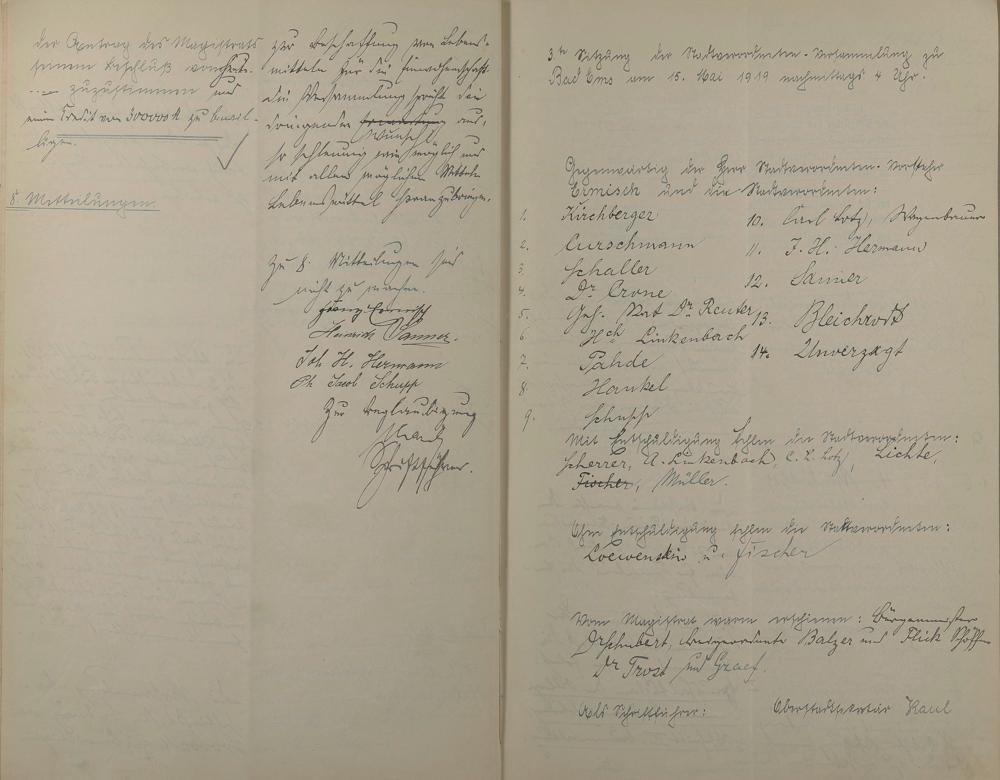 der Antrag des Magistrats
seinem Beschluß von heute
zuzustimmen und
einen Kredit von 300000 M zu bewil-
ligen.
8. Mitteilungen
zur Beschaffung von Lebens-
mitteln für die Einwohnerschaft.
Die Versammlung spricht den
dringenden Wunsch aus,
so schleunig wie möglich und
mit allen möglichen Mitteln
Lebensmittel heranzubringen.
Zu 8. Mitteilungen sind
nicht zu machen.
Franz Ermisch
Heinrich Sanner.
Joh. H. Hermann
Ph. Jacob Schupp
Zur Beglaubigung
Kaul
Schriftführer.
3te Sitzung der Stadtverordneten-Versammlung zu
Bad Ems am 15. Mai 1919 nachmittags 4 Uhr.
Gegenwärtig der Herr Stadtverordneten-Vorsteher
Ermisch und die Stadtverordneten:
1. Kirchberger
2. Curschmann
3. Schaller
4. Dr. Crone
5. Geh. Rat Dr. Reuter
6. Hch. Linkenbach
7. Pahde
8. Hankel
9. Schupp
10. Carl Lotz, Wagenbauer
11. J. H. Hermann
12. Sanner
13. Bleichrodt
14. Unverzagt
Mit Entschuldigung fehlen die Stadtverordneten:
Scherrer, A. Linkenbach, C. L. Lotz, Lichte,
Fischer, Müller.
Ohne Entschuldigung fehlen die Stadtverordneten:
Loewenskin u. Fischer
Vom Magistrat waren erschienen: Bürgermeister
Dr Schubert, Beigeordnete Balzer und Flick Schöffen
Dr Trost und Graef.
Als Schriftführer: Oberstadtsekretär Kaul